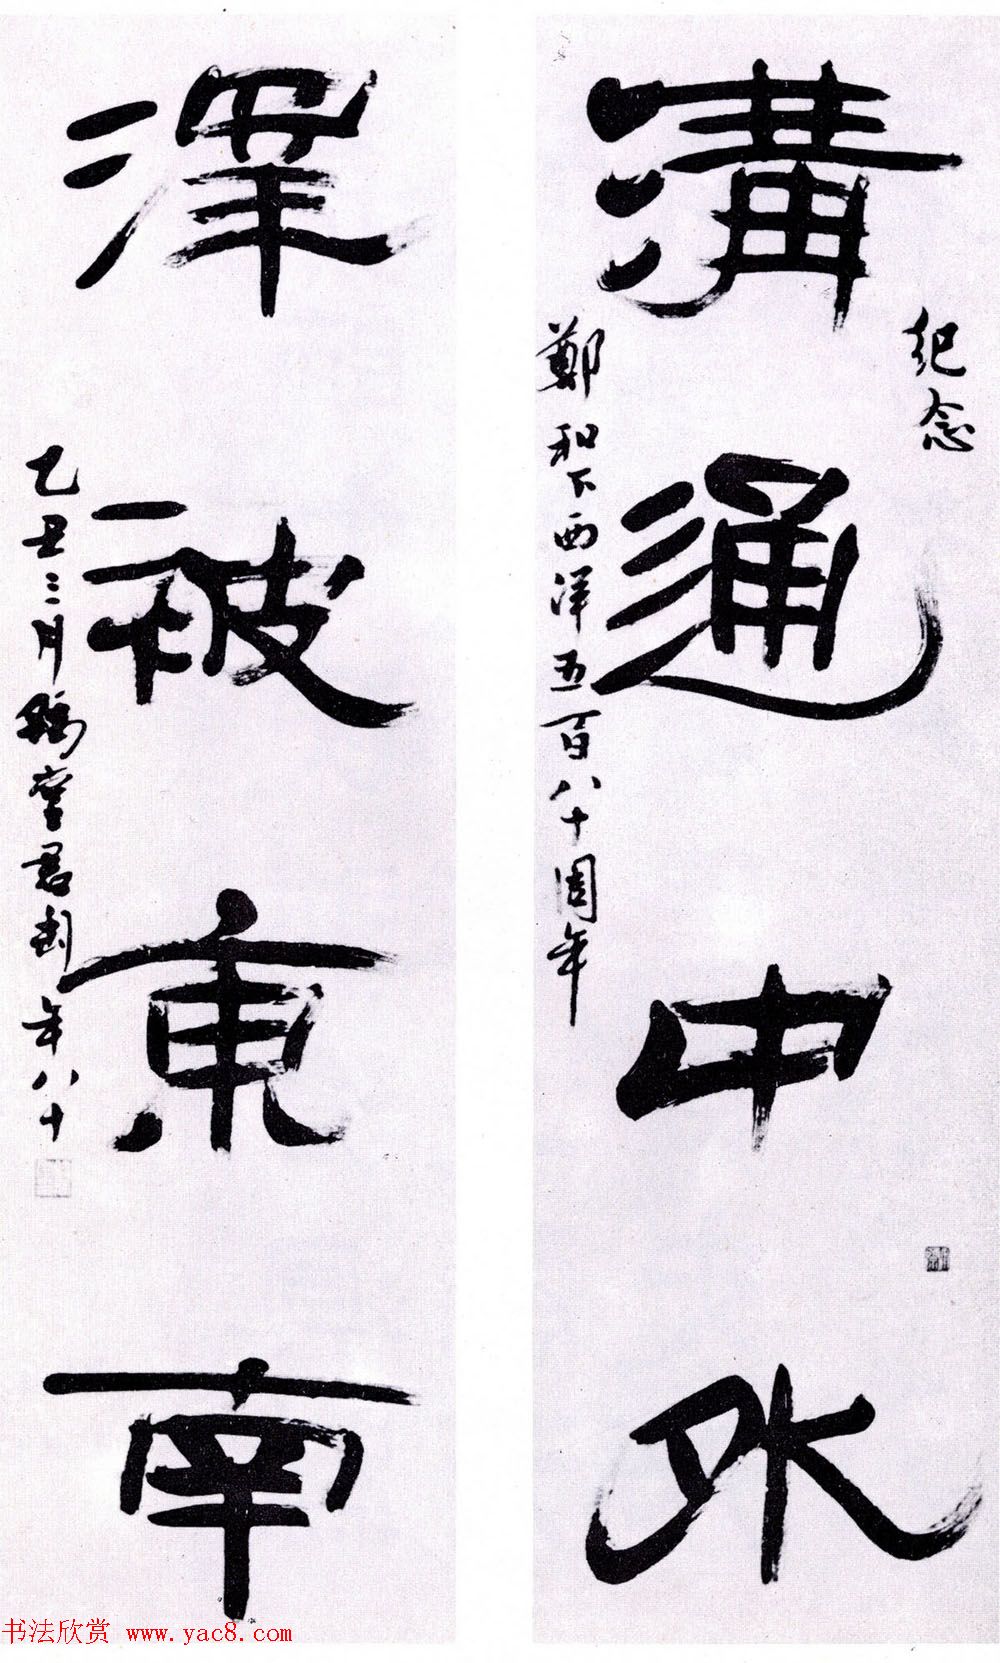 溝通中外
紀念
鄭和下西洋五百八十周年
澤被東南
乙丑三月鶴堂君匋年八十
书法欣赏 www.yac8.com